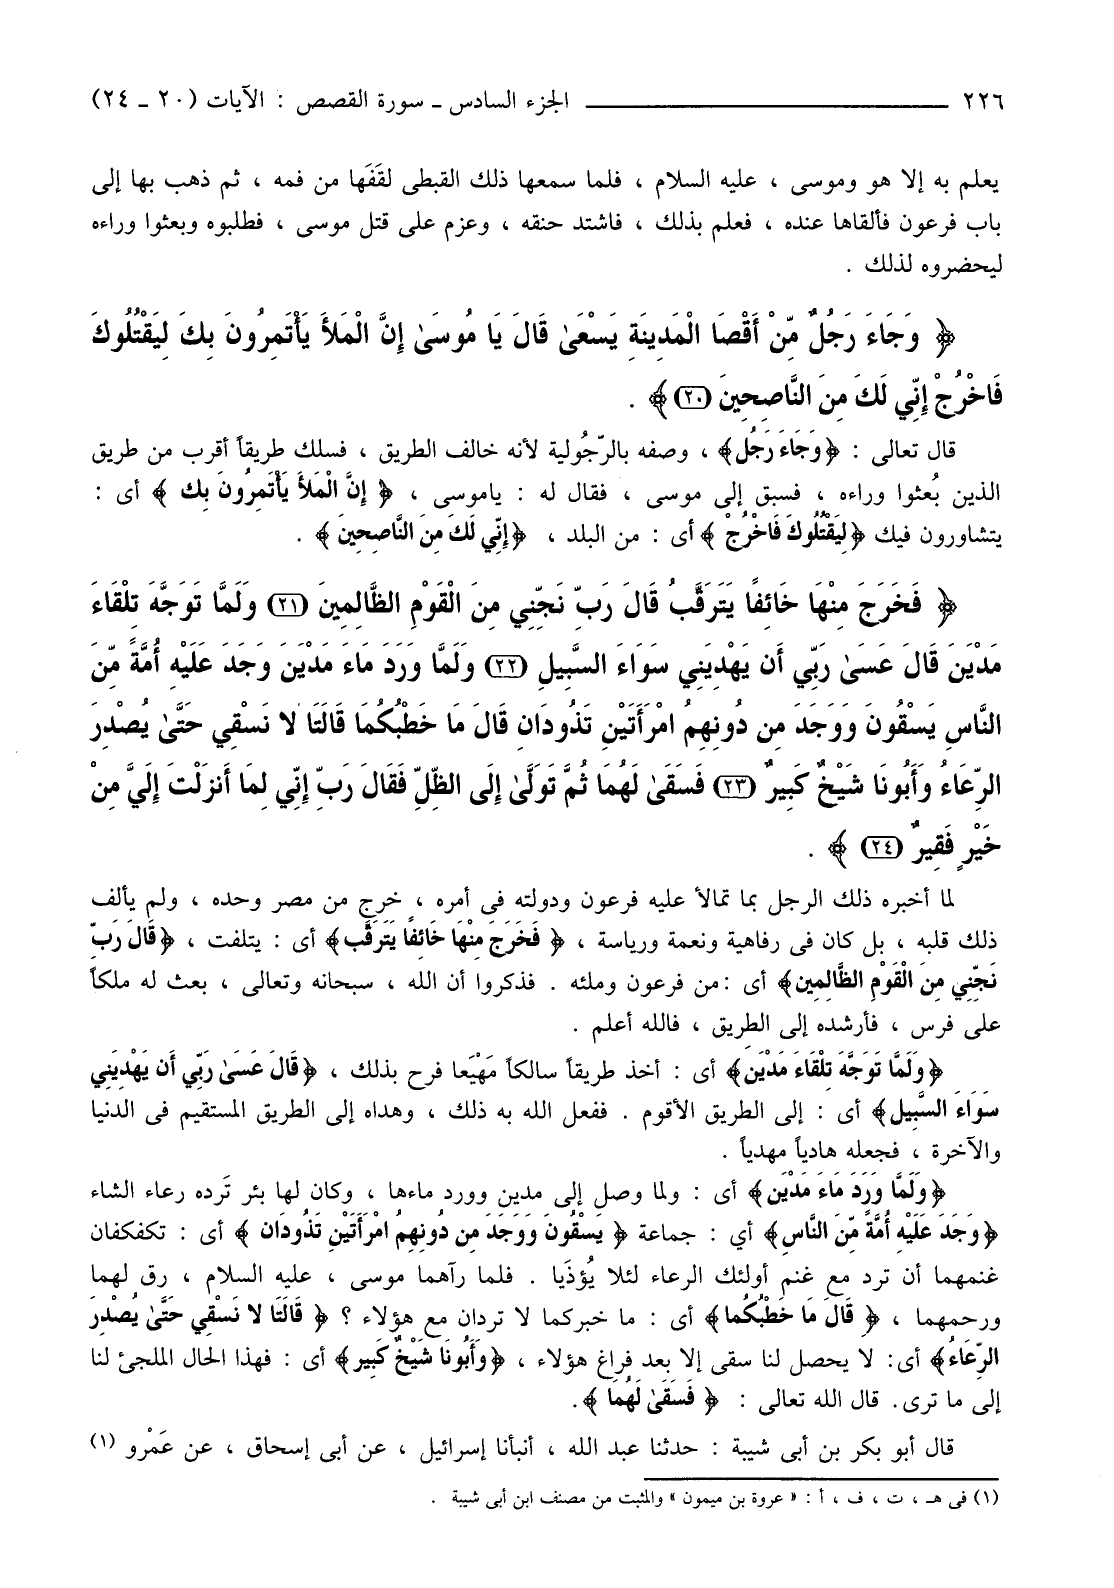 ٢٢٦ ــــــــــــــــــــــــــــــــ الجزء السادس ـ سورة القصص : الآيات (٢٠ ـ ٢٤)
يعلم به إلا هو وموسى ، عليه السلام ، فلما سمعها ذلك القبطى لقَفَها من فمه ، ثم ذهب بها إلى
باب فرعون فألقاها عنده ، فعلم بذلك ، فاشتد حنقه ، وعزم على قتل موسى ، فطلبوه وبعثوا وراءه
ليحضروه لذلك .
﴿ وَجَاءَ رَجُلٌ مِّنْ أَقْصَا الْمَدِينَةِ يَسْعَىٰ قَالَ يَا مُوسَىٰ إِنَّ الْمَلأَ يَأْتَمِرُونَ بِكَ لِيَقْتُلُوكَ
فَاخْرُجْ إِنِّي لَكَ مِنَ النَّاصِحِينَ (٢٠)﴾ .
قال تعالى : ﴿وَجَاءَ رَجُل﴾ ، وصفه بالرّجُولية لأنه خالف الطريق ، فسلك طريقاً أقرب من طريق
الذين بُعثوا وراءه ، فسبق إلى موسى ، فقال له : ياموسى ، ﴿ إِنَّ الْمَلأَ يَأْتَمِرُونَ بِك ﴾ أى :
يتشاورون فيك ﴿لِيَقْتُلُوكَ فَاخْرُجْ ﴾ أى : من البلد ، ﴿إِنِّي لَكَ مِنَ النَّاصِحِينَ ﴾ .
﴿ فَخَرَجَ مِنْهَا خَائِفًا يَتَرَقَّبُ قَالَ رَبِّ نَجِّنِي مِنَ الْقَوْمِ الظَّالِمِينَ (٢١) وَلَمَّا تَوَجَّهَ تِلْقَاءَ
مَدْيَنَ قَالَ عَسَىٰ رَبِّي أَن يَهْدِيَنِي سَوَاءَ السَّبِيلِ (٢٢) وَلَمَّا وَرَدَ مَاءَ مَدْيَنَ وَجَدَ عَلَيْهِ أُمَّةً مِّنَ
النَّاسِ يَسْقُونَ وَوَجَدَ مِن دُونِهِمُ امْرَأَتَيْنِ تَذُودَانِ قَالَ مَا خَطْبُكُمَا قَالَتَا لا نَسْقِي حَتَّىٰ يُصْدِرَ
الرِّعَاءُ وَأَبُونَا شَيْخٌ كَبِيرٌ (٢٣) فَسَقَىٰ لَهُمَا ثُمَّ تَوَلَّىٰ إِلَى الظِّلِّ فَقَالَ رَبِّ إِنِّي لِمَا أَنزَلْتَ إِلَيَّ مِنْ
خَيْرٍ فَقِيرٌ (٢٤) ﴾ .
لما أخبره ذلك الرجل بما تمالأ عليه فرعون ودولته فى أمره ، خرج من مصر وحده ، ولم يألف
ذلك قلبه ، بل كان فى رفاهية ونعمة ورياسة ، ﴿ فَخَرَجَ مِنْهَا خَائِفًا يَتَرَقَّب﴾ أى : يتلفت ، ﴿قَالَ رَبِّ
نَجِّنِي مِنَ الْقَوْمِ الظَّالِمِين﴾ أى :من فرعون وملئه . فذكروا أن الله ، سبحانه وتعالى ، بعث له ملكاً
على فرس ، فأرشده إلى الطريق ، فالله أعلم .
﴿وَلَمَّا تَوَجَّهَ تِلْقَاءَ مَدْيَن﴾ أى : أخذ طريقاً سالكاً مَهْيَعا فرح بذلك ، ﴿قَالَ عَسَىٰ رَبِّي أَن يَهْدِيَنِي
سَوَاءَ السَّبِيل﴾ أى : إلى الطريق الأقوم . ففعل الله به ذلك ، وهداه إلى الطريق المستقيم فى الدنيا
والآخرة ، فجعله هادياً مهدياً .
﴿وَلَمَّا وَرَدَ مَاءَ مَدْيَن﴾ أى : ولما وصل إلى مدين وورد ماءها ، وكان لها بئر تَرده رعاء الشاء
﴿وَجَدَ عَلَيْهِ أُمَّةً مِّنَ النَّاسِ﴾ أي : جماعة ﴿ يَسْقُونَ وَوَجَدَ مِن دُونِهِمُ امْرَأَتَيْنِ تَذُودَان ﴾ أى : تكفكفان
غنمهما أن ترد مع غنم أولئك الرعاء لئلا يُؤذَيا . فلما رآهما موسى ، عليه السلام ، رق لهما
ورحمهما ، ﴿ قَالَ مَا خَطْبُكُما﴾ أى : ما خبركما لا تردان مع هؤلاء ؟ ﴿ قَالَتَا لا نَسْقِي حَتَّىٰ يُصْدِرَ
الرِّعَاءُ﴾ أى: لا يحصل لنا سقى إلا بعد فراغ هؤلاء ، ﴿وَأَبُونَا شَيْخٌ كَبِير﴾ أى : فهذا الحال الملجئ لنا
إلى ما ترى. قال الله تعالى : ﴿ فَسَقَىٰ لَهُمَا ﴾.
قال أبو بكر بن أبى شيبة : حدثنا عبد الله ، أنبأنا إسرائيل ، عن أبى إسحاق ، عن عَمْرو (١)
(١) فى هـ ، ت ، ف ، أ : « عروة بن ميمون » والمثبت من مصنف ابن أبى شيبة .